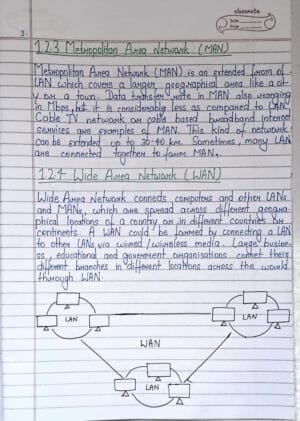 classmate
Date
Page
3.
1.2.3 Metropolitan Area Network (MAN)
Metropolitan Area Network (MAN) is an extended from of
LAN which covers a larger geographical area like a ci-
ty or a town. Data transfer rate in MAN also ranging
in Mbps, but it is considerably less as compared to LAN.
Cable TV network or cable based broadband internet
services are examples of MAN. This kind of network
can be extended up to 30-40 km. Sometimes, many LAN
are connected together to form MAN.
1.2.4 Wide Area Network (WAN)
Wide Area Network connects computers and other LANs
and MANs, which are spread across different geogra-
phical locations of a country or in different countries or
continents. A WAN could be formed by connecting a LAN
to other LANs via wired/wireless media. Large busine-
ss, educational and government organisations connet their
different branches in different locations across the world
through WAN.
LAN
LAN
WAN
LAN